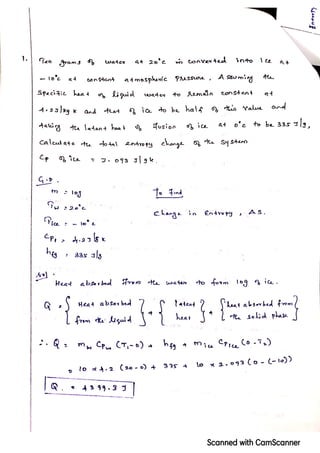 Entropy
1. Ten grams of water at 20°C is converted into ice at
- 10°C at constant atmospheric pressure. Assuming the
specific heat of liquid water to remain constant at
4.2 J/gK and that of ice to be half of this value and
taking the latent heat of fusion of ice at 0°C to be 335 J/g,
Calculate the total entropy change of the system
Cp of ice = 2.093 J/gK.
G.D.
m = 10g To Find
Tw = 20°C Change in Entropy, ΔS.
Tice = - 10°C
Cp = 4.2 J/gK
hfg = 335 J/g
Sol:
Heat absorbed from the water to form 10g of ice.
Q = { Heat absorbed from the liquid } + { latent heat } + { heat absorbed from the solid phase }
∴ Q = mw Cpw (T1-0) + hfg + mice Cpice (0 - T2)
= 10 x 4.2 (20-0) + 335 + 10 x 2.093 (0 - (-10))
Scanned with CamScanner